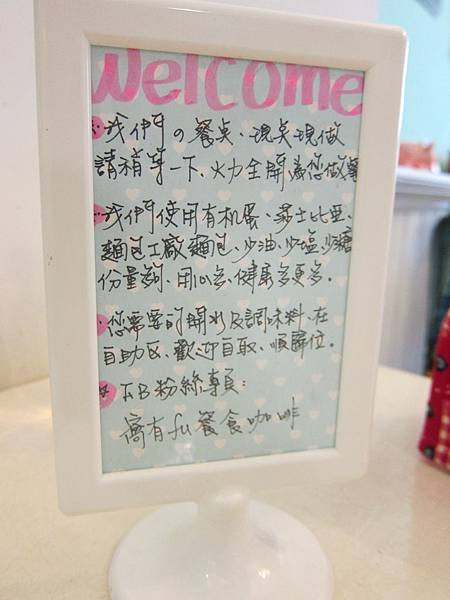 Welcome
我們の餐桌、現点現做
請稍等一下、火力全開為您做餐
我們使用有机蛋、莎士比亞、
麵包工廠麵包、少油、少塩、少糖
份量夠、用心多、健康多更多。
您需要的開水及調味料、在
自助区、歡迎自取、順歸位。
FB粉絲專頁:
窩有fu餐食咖啡